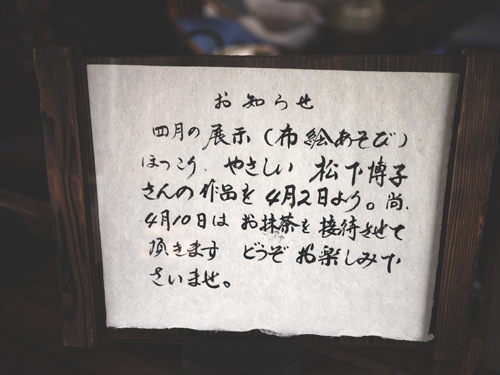 お知らせ
四月の展示（布絵あそび）
ほっこり、やさしい 松下博子
さんの作品を4月2日より。尚、
4月10日はお抹茶を接待させて
頂きます どうぞお楽しみ下
さいませ。